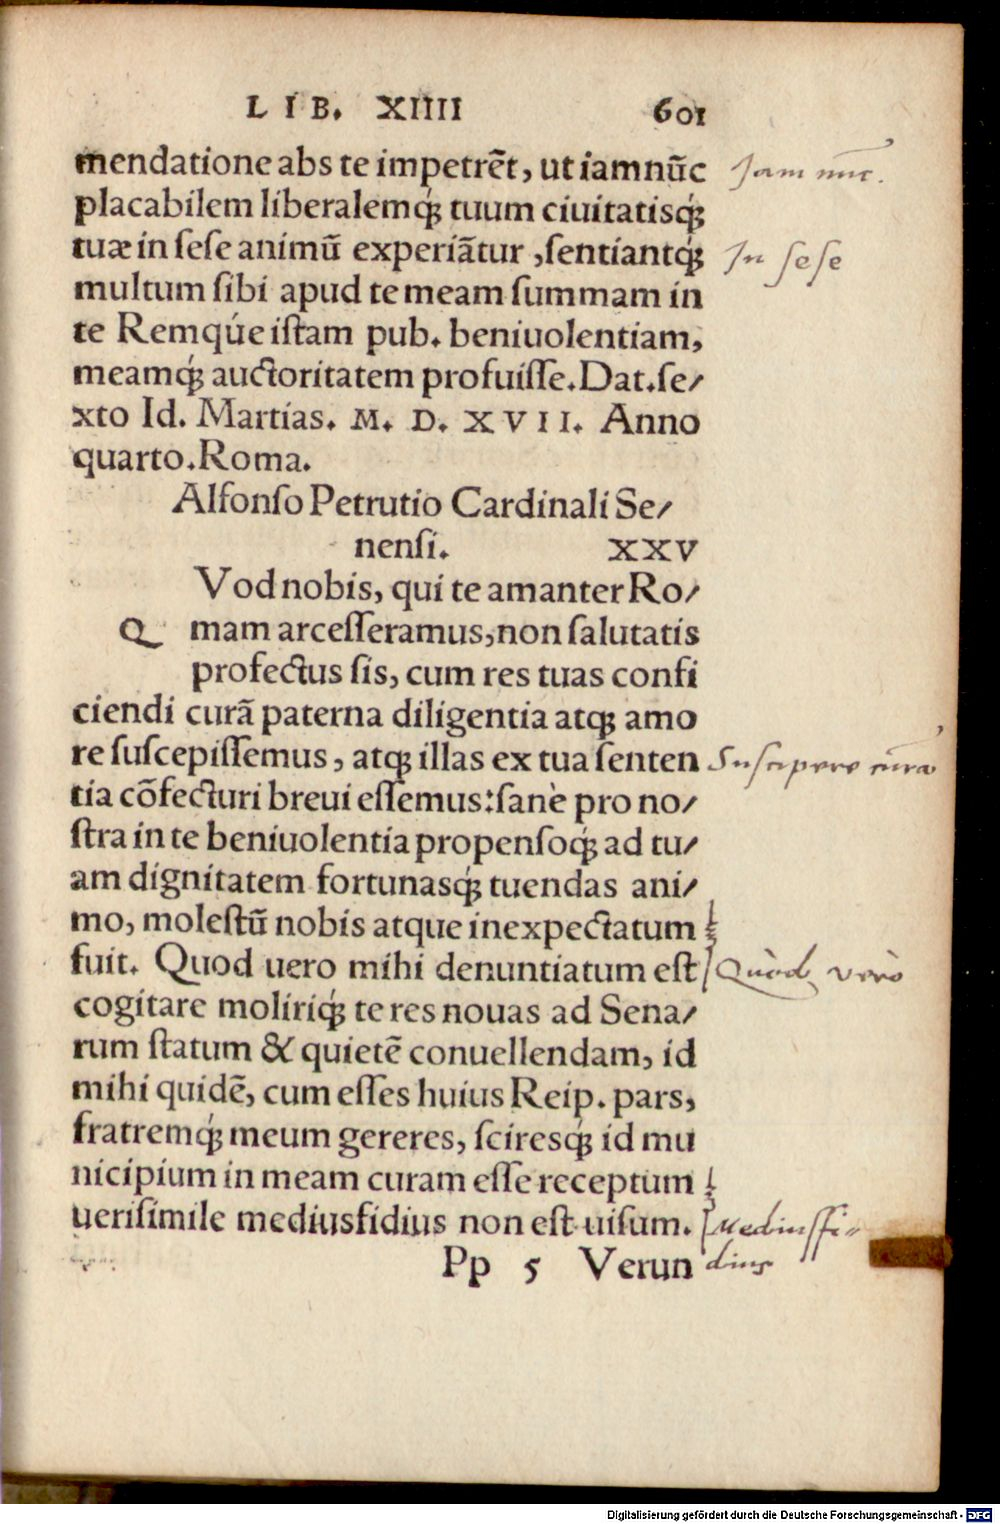 LIB. XIIII 601
mendatione abs te impetrēt, ut iam nūc
placabilem liberalemq́; tuum ciuitatisq́;
tuæ in sese animū experiātur, sentiantq́;
multum sibi apud te meam summam in
te Remqúe istam pub. beniuolentiam,
meamq́; auctoritatem profuisse. Dat. se/
xto Id. Martias. M. D. XVII. Anno
quarto. Roma.
Alfonso Petrutio Cardinali Se/
nensi. XXV
Vod nobis, qui te amanter Ro/
Q mam arcesseramus, non salutatis
profectus sis, cum res tuas confi
ciendi curā paterna diligentia atq; amo
re suscepissemus, atq; illas ex tua senten
tia cōfecturi breui essemus: sanè pro no/
stra in te beniuolentia propensoq́; ad tu/
am dignitatem fortunasq́; tuendas ani/
mo, molestū nobis atque inexpectatum
fuit. Quod uero mihi denuntiatum est
cogitare moliriq́; te res nouas ad Sena/
rum statum & quietē conuellendam, id
mihi quidē, cum esses huius Reip. pars,
fratremq́; meum gereres, sciresq́; id mu
nicipium in meam curam esse receptum
uerisimile mediusfidius non est uisum.
Pp 5 Verun
Jam nūc.
In sese
Suscipere curā
Quod vero
Mediusfi-
dius
Digitalisierung gefördert durch die Deutsche Forschungsgemeinschaft - DFG